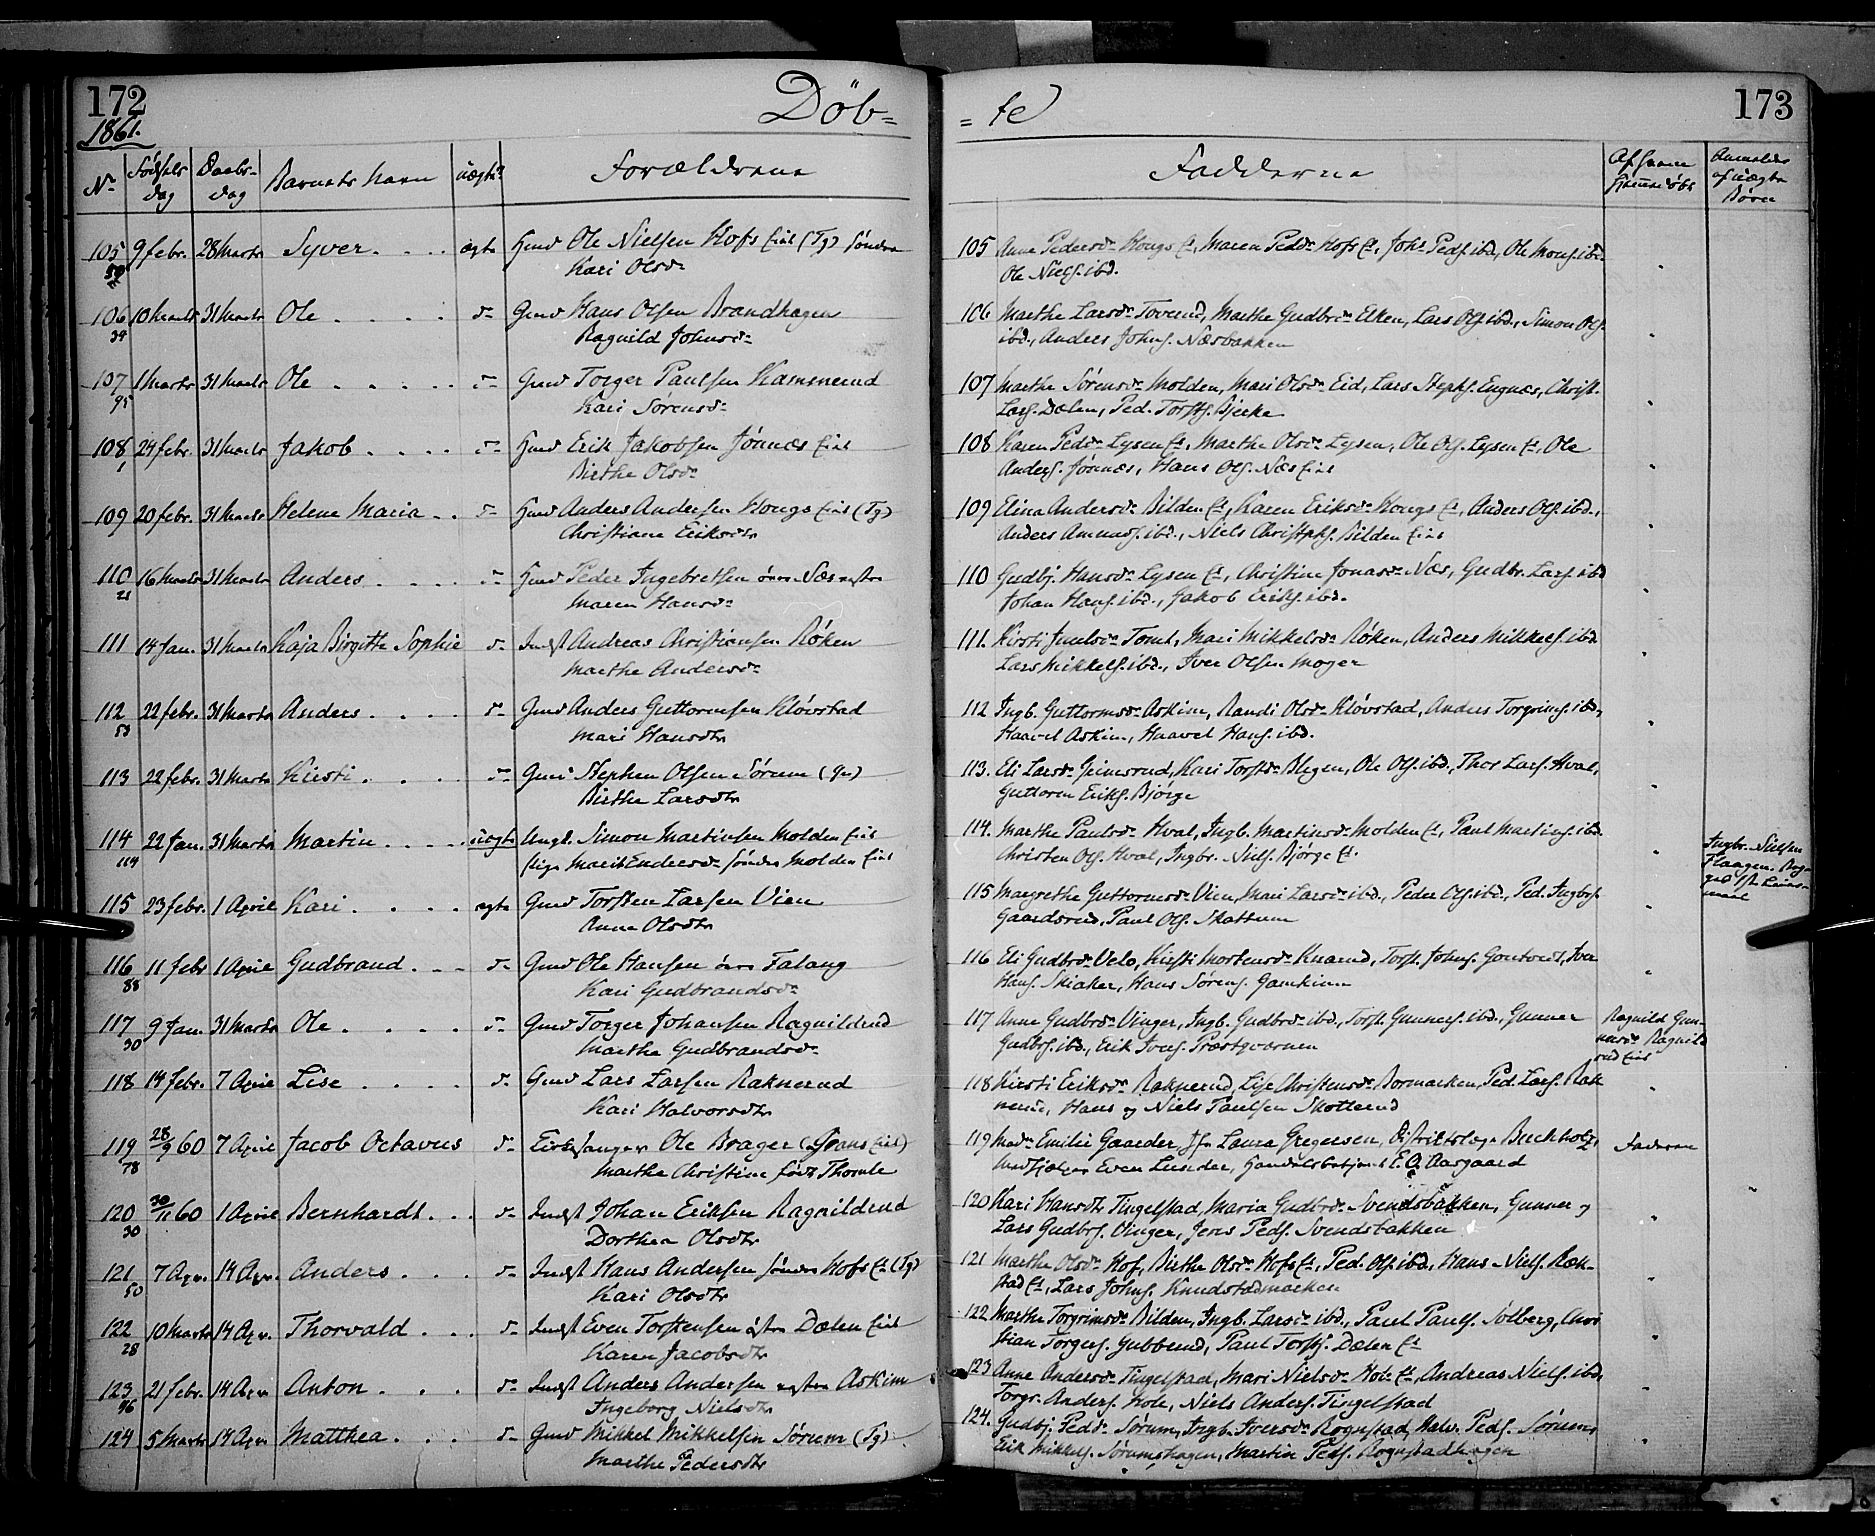 172
1861.
Döb=
No Fødsels dag Daabs dag Barnets Navn uægte Forældrene
105 9 febr. 28 Marts Syver. ægte Hmd Ole Nielsen Hofs (Tg) Søndre
Kari Olsdr
106 10 Marts 31 Marts Ole Gmd Hans Olsen Brandhagen
34 Ragnild Johnsdr
107 1 Marts 31 Marts Ole Gmd Torger Paulsen Hamnerud
95 Kari Sørensdr
108 24 febr. 31 Marts Jakob Hmd Erik Jakobsen Jønnæs
1 Birthe Olsdr
109 20 febr. 31 Marts Helene Maria Hmd Anders Andersen Hougs (Tg)
Christiane Eriksdtr
110 16 Marts 31 Marts Anders Hmd Peder Ingebretsen Næs
21 Maren Hansdr
111 14 Jan. 31 Marts Kaja Birgitte Sophie Indst Andreas Christiansen Røken
Marthe Andersdr
112 22 febr. 31 Marts Anders Gmd Anders Guttormsen Kløvstad
53 Mari Hansdtr
113 22 febr. 31 Marts Kirsti Gmd Stephen Olsen Sørum (Gr)
Birthe Larsdtr
114 22 Jan. 31 Marts Martin uægte Ungk. Simon Martinsen Molden
114 Pige Marit Endersdr søndre Molden
115 23 febr. 1 April Kari ægte Gmd Torsten Larsen Vien
Anne Olsdtr
116 11 febr 1 April Gudbrand Gmd Ole Hansen Falang
88 Kari Gudbrandsdr
117 9 Jan. 31 Marts Ole Gmd Torger Johansen Ragnildrud
30 Marthe Gudbrandsdr
118 14 febr. 7 April Lise Gmd Lars Larsen Raknerud
Kari Halvorsdtr
119 28/9 60 7 April Jacob Octavus Kirkesanger Ole Brager (Grans)
78 Marthe Christine født Thomle
120 30/11 60 1 April Bernhardt Indst Johan Eriksen Ragnildrud
30 Dorthea Olsdtr
121 7 Apr. 14 Apr. Anders Indst Hans Andersen søndre Hofs (Tg)
50 Kari Olsdtr
122 10 Marts 14 Apr. Thorvald Indst Even Torstensen østre Dælen
28 Karen Jacobsdtr
123 21 febr. 14 Apr Anton Indst Anders Andersen Askim
46 Ingeborg Nielsdtr
124 5 Marts 14 Apr Matthea Gmd Mikkel Mikkelsen Sørum (Tg)
Marthe Pedersdtr
= te
173
Fadderne
Hjemmedøbt
Anmeldte af uægte Børn
105 Anne Pedersdr Hougs, Maren Pedsdr Hofs, Johs Peds. ibd., Ole Mons. ibd.
Ole Niels. ibd.
106 Marthe Larsdr Toverud, Marthe Gudbrdr Elken, Lars Ols. ibd., Simon Ols.
ibd., Anders Johns. Næsbakken
107 Marthe Sørensdr Molden, Mari Olsdr Eid, Lars Stephs. Engnæs, Christ.
Lars. Dælen, Ped. Torsts. Bjerke
108 Karen Pedsdr Lysen, Marthe Olsdr Lysen, Ole Ols. Lysen, Ole
Anders. Jønnæs, Hans Ols. Næs
109 Elina Andersdr Bilden, Karen Eriksdr Hougs, Anders Ols. ibd.,
Anders Amunds. ibd., Niels Christphs. Bilden
110 Gudbj. Hansdr Lysen, Christine Jonasdr Næs, Gudbr. Lars. ibd
Johan Hans. ibd., Jakob Eriks. ibd.
111. Kirsti Juulsdr Tomt, Mari Mikkelsdr Røken, Anders Mikkels. ibd.
Lars Mikkels. ibd., Iver Olsen Moger
112 Ingb. Guttormsdr Askim, Randi Olsdr Kløvstad, Anders Torgrims. ibd,
Haavel Askim, Haavel Hans. ibd.
113. Eli Larsdr Grimsrud, Kari Torstsdr Blegen, Ole Ols. ibd., Thor Lars. Hval,
Guttorm Eriks. Bjørge
114. Marthe Paulsdr Hval, Ingb. Martinsdr Molden, Paul Martins. ibd.
Christen Ols. Hval, Ingbr. Niels. Bjørge
Ingbr. Nielsen
115 Margrethe Guttormsdr Vien, Mari Larsdr ibd., Peder Ols. ibd., Ped. Ingbrs.
Gaardsrud, Paul Ols. Skattum
116 Eli Gudbrdr Velo, Kirsti Mortensdr Knarud, Torst. Johns. Gontvedt, Iver
Hans. Skiaker, Hans Sørens. Gamkinn
117 Anne Gudbrdr Vinger, Ingb. Gudbrdr ibd., Torst. Gunners. ibd., Gunner
Gudbrs. ibd., Erik Ivers. Præstqværnen
Ragnild Gun-
nersdr Ragnild
rud
118 Kirsti Eriksdr Raknerud, Lise Christensdr Bormarken, Ped. Lars. Rak
nerud, Hans og Niels Paulsen Skotterud
119 Mad. Emilie Gaarder, Jfr Laura Gregersen, Distriktslæge Buchholz,
Medhjælper Even Lunder, Handelsbetjent E. O. Aasgaard
Faderen
120 Kari Hansdtr Tingelstad, Maria Gudbrdr Svendsbakken, Gunner og
Lars Gudbrs. Vinger, Jens Peds. Svendsbakken
121 Marthe Olsdr Hof, Birthe Olsdr Hofs, Ped. Ols. ibd., Hans Niels. Ræk-
stad, Lars Johns. Knudstadmarken
122 Marthe Torgrimsdr Bilden, Ingb. Larsdr ibd., Paul Pauls. Solberg, Chri
stian Torgers. Gubberud, Paul Torsts. Dælen
123 Anne Andersdr Tingelstad, Mari Nielsdr Hole, Andreas Niels. ibd,
Torgr. Anders. Hole, Niels Anders. Tingelstad
124. Gudbj. Pedsdr Sørum, Ingb. Iversdr Rognstad, Halv. Peds. Sørum,
Erik Mikkels. Sørumshagen, Martin Peds. Rognstadhagen